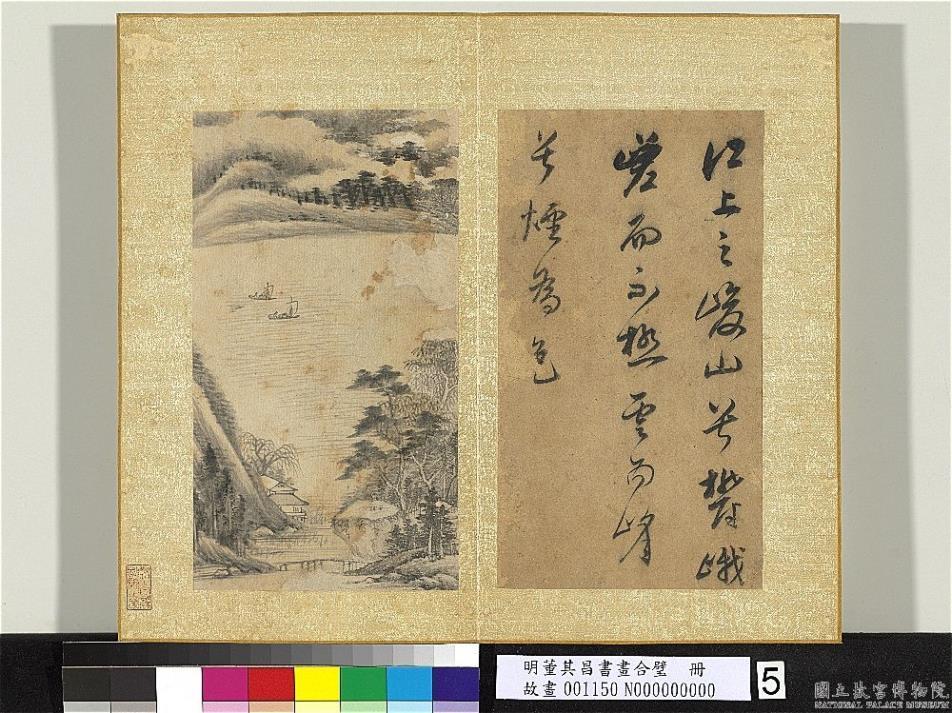 江上之峻山兮鬱峨
嵯而不極雲為峰
兮煙為色
明董其昌書畫合璧 冊
故畫 001150 N000000000
5
國立故宮博物院
NATIONAL PALACE MUSEUM